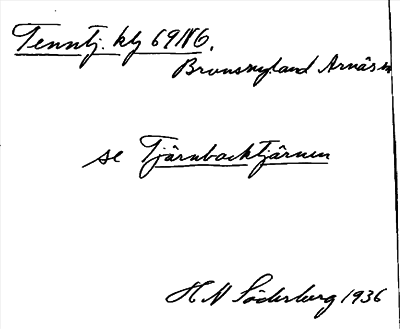 Tenntj. klj 69 N6.
Bronsnyland Arnäs sn
se Tjärnbacktjärnen
H N Söderberg 1936